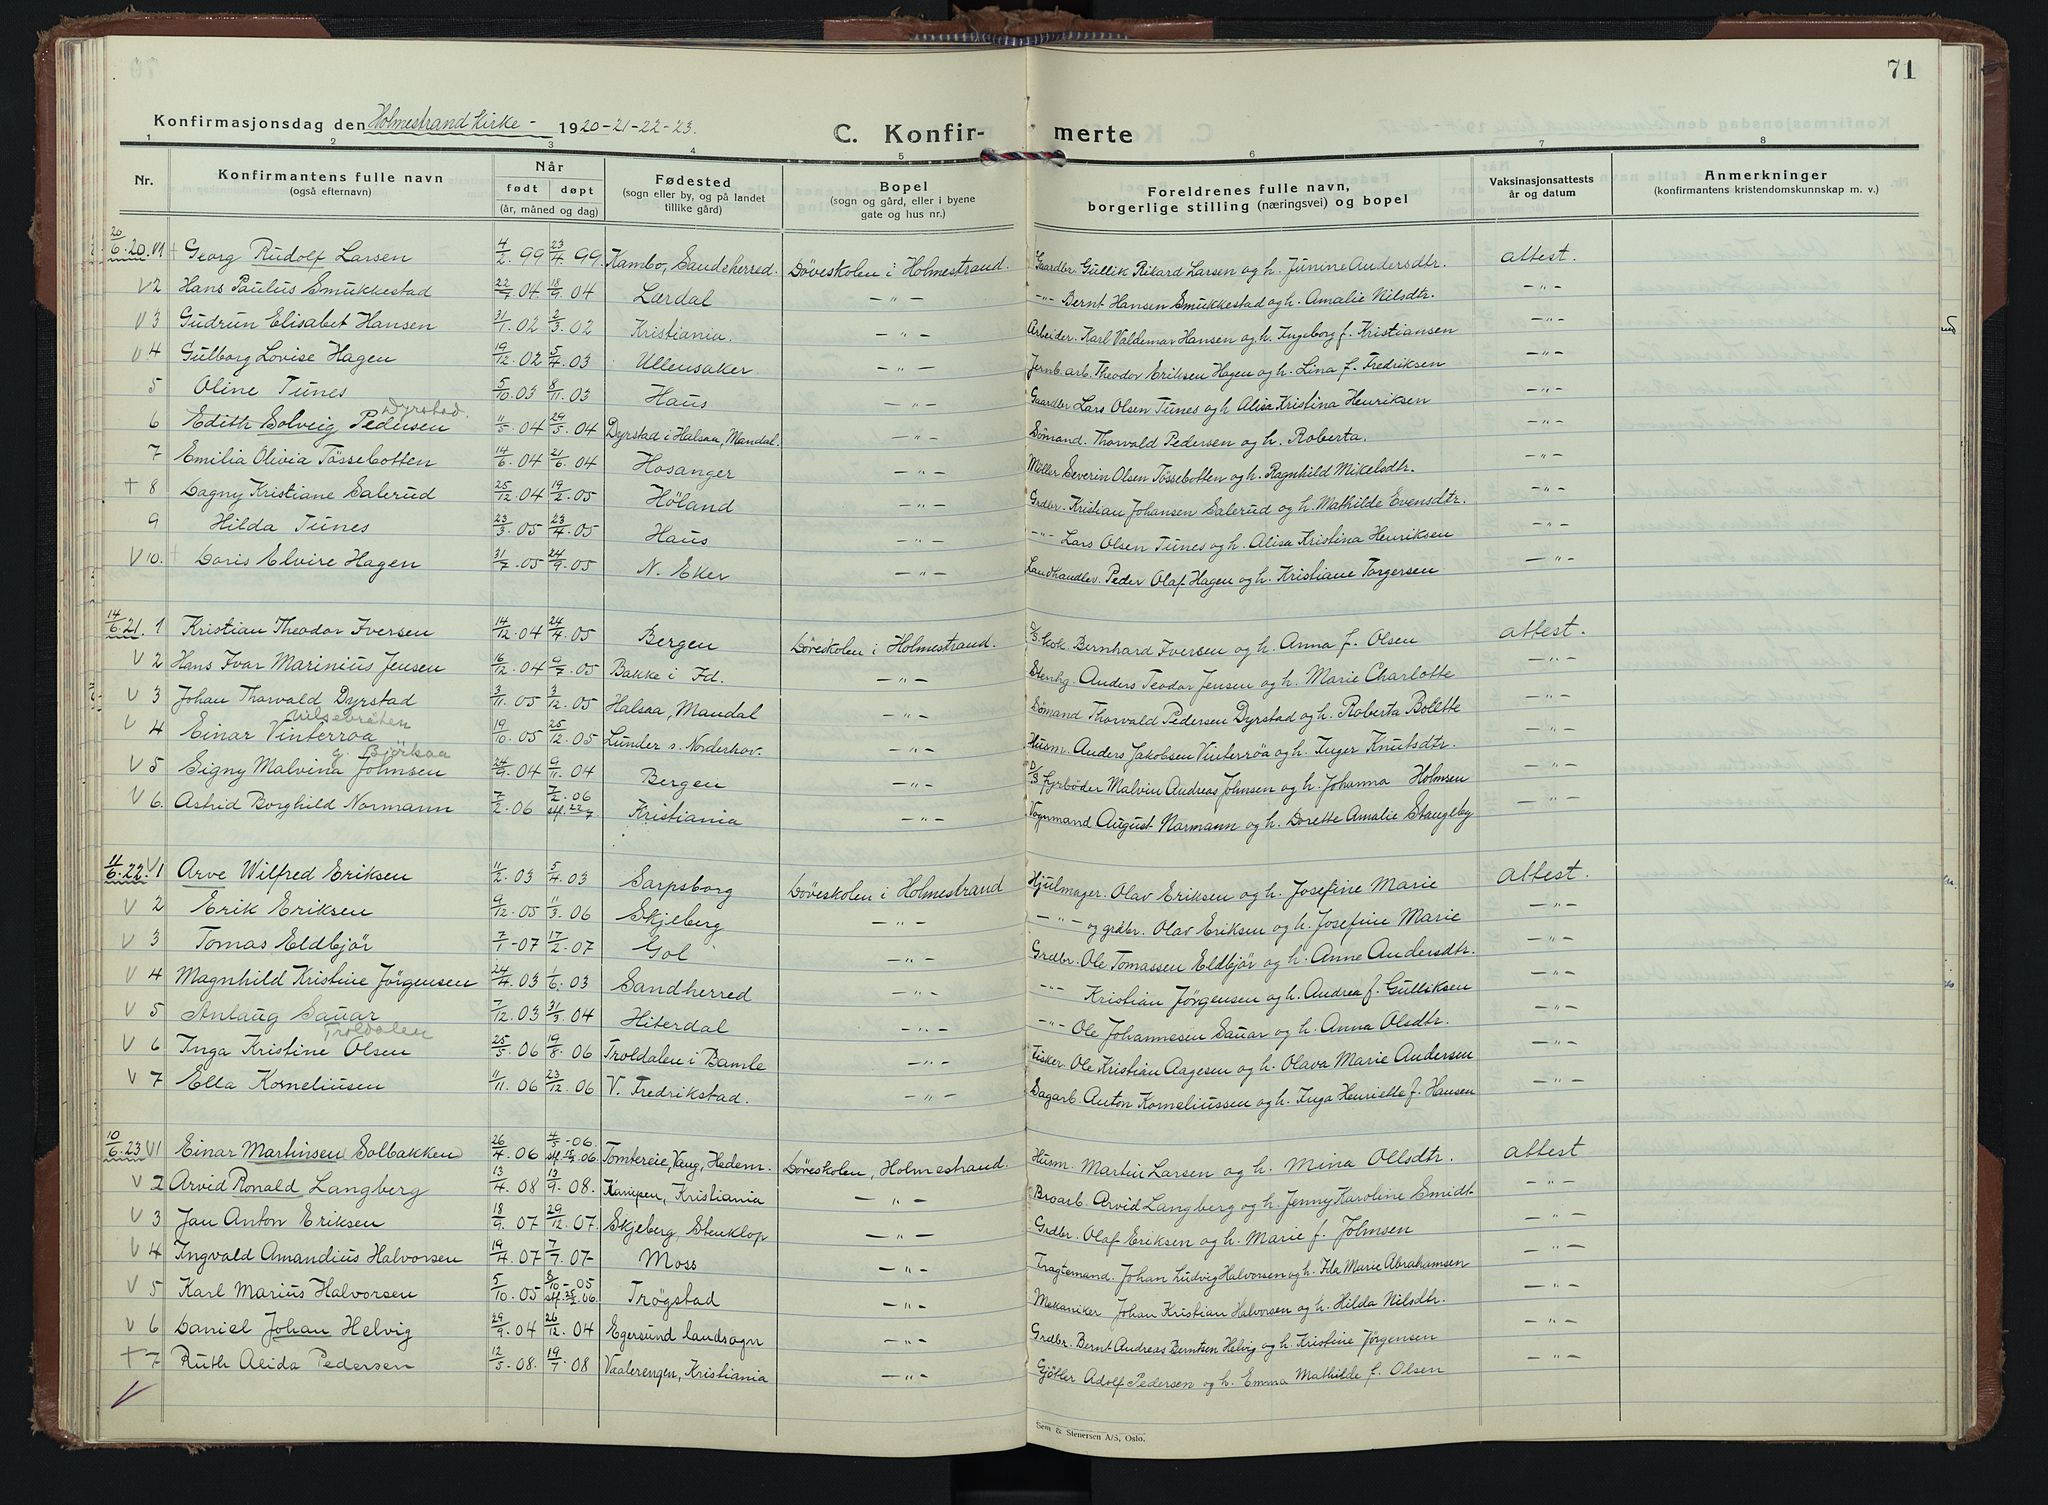 71
Konfirmasjonsdag den Holmestrand kirke - 1920-21-22-23. C. Konfir- merte
1 2 3 4 5 6 7 8
Nr. Konfirmantens fulle navn (også efternavn) Når født døpt (år, måned og dag) Fødested (sogn eller by, og på landet tillike gård) Bopel (sogn og gård, eller i byene gate og hus nr.) Foreldrenes fulle navn, borgerlige stilling (næringsvei) og bopel Vaksinasjonsattests år og datum Anmerkninger (konfirmantens kristendomskunnskap m. v.)
20/6.20. V1 + Georg Rudolf Larsen 4/2.99 23/4.99 Kambo, Sandeherred. Døveskolen i Holmestrand. Gaardbr. Gullik Rikard Larsen og h. Junine Andersdtr. attest.
V 2 Hans Paulus Smukkestad 22/7.04 18/9.04 Lærdal —"— —"— Bernt Hansen Smukkestad og h. Amalie Nilsdtr. —"—
V 3 Gudrun Elisabet Hansen 31/1.02 2/3.02 Kristiania. —"— Arbeider. Karl Valdemar Hansen og h. Ingeborg f. Kristiansen —"—
V 4 Gulborg Lovise Hagen 19/12.02 5/4.03 Ullensaker. —"— Jernb. arb. Theodor Eriksen Hagen og h. Lina f. Fredriksen —"—
5 Oline Tunes 5/10.03 8/11.03 Haus —"— Gaardbr Lars Olsen Tunes og h. Alisa Kristina Henriksen —"—
Dyrstad.
6 Edith Solveig Pedersen 11/5.04 29/5.04 Dyrstad i Halsaa, Mandal. —"— Sømand. Thorvald Pedersen og h. Roberta. —"—
7 Emilia Olivia Tössebotten 14/6.04 21/6.04 Hosanger —"— Møller Severin Olsen Tössebotten og h. Ragnhild Mikelsdtr. —"—
+ 8 Dagny Kristiane Salerud 25/12.04 19/2.05 Höland —"— Grdbr. Kristian Johansen Salerud og h. Mathilde Evensdtr. —"—
9 Hilda Tunes 23/3.05 23/4.05 Haus —"— —"— Lars Olsen Tunes og h. Alisa Kristina Henriksen —"—
V 10. + Doris Elvire Hagen 31/7.05 24/9.05 N. Eker —"— Landhandler. Peder Olaf Hagen og h. Kristiane Torgersen —"—
14/6.21. 1 Kristian Theodor Iversen 14/12.04 24/4.05 Bergen Døveskolen i Holmestrand. D/S. kok Bernhard Iversen og h. Anna f. Olsen attest.
V 2 Hans Ivar Marinius Jensen 16/12.04 9/7.05 Bakke i Fd. —"— Stenhg. Anders Teodor Jensen og h. Marie Charlotte —"—
V 3 Johan Thorvald Dyrstad 3/11.05 3/12.05 Halsaa, Mandal —"— Sømand Thorvald Pedersen Dyrstad og h. Roberta Bolette —"—
Nilsebråten
V 4 Einar Vinterroa 19/10.05 25/12.05 Lunder s. Norderhov. —"— Husm. Anders Jakobsen Vinterrøa og h. Inger Knutsdtr. —"—
g. Björkaa
V 5 Signy Malvina Johnsen 24/9.04 9/11.04 Bergen —"— D/S fyrbøder Malvin Andreas Johnsen og h. Johanna Holmsen —"—
V 6. Astrid Borghild Normann 7/2.06 7/2.06 stf. 22/7 Kristiania —"— Vognmand August Normann og h. Dorette Amalie Stangeby —"—
11/6.22. V1 Arve Wilfred Eriksen 11/2.03 5/4.03 Sarpsborg Døveskolen i Holmestrand Hjulmager. Olav Eriksen og h. Josefine Marie attest.
V 2 Erik Eriksen 9/12.05 11/3.06 Skjeberg —"— —"— og grdbr. Olav Eriksen og h. Josefine Marie —"—
V 3 Tomas Eldbjør 7/1-07 17/2.07 Gol —"— Grdbr. Ole Tomassen Eldbjør og h. Anne Andersdtr. —"—
V 4 Magnhild Kristine Jørgensen 24/4.03 1/6.03 Sandherred —"— —"— Kristian Jørgensen og h. Andrea f. Gulliksen —"—
V 5 Anlaug Sauar 7/12.03 31/3.04 Hiterdal —"— —"— Ole Johannesen Sauar og h. Anna Olsdtr. —"—
Troldalen
V 6 Inga Kristine Olsen 25/5.06 19/8.06 Troldalen i Bamle —"— Fisker Ole Kristian Aagesen og h. Olava Marie Andersen —"—
V 7 Ella Korneliusen 11/11.06 23/12.06 V. Fredrikstad. —"— Dagarb. Anton Korneliussen og h. Inga Henriette f. Hansen —"—
10/6.23 V1 Einar Martinsen Solbakken 26/4.06 4/5-06. Tomtereie, Vang, Hedem. Døveskolen, Holmestrand. Husm. Martin Larsen og h. Mina Ollsdtr. attest
V 2 Arvid Ronald Langberg 13/4.08 13/9.08. Kampen, Kristiania —"— Broarb. Arvid Langberg og h. Jenny Karoline Smidt —"—
V 3 Jan Anton Eriksen 18/9.07 29/12.07. Skjeberg Stenklop —"— Grdbr. Olaf Eriksen og h. Marie f. Johnsen —"—
V 4 Ingvald Amandius Halvorsen 19/4.07 7/7.07- Moss —"— Fragtemand. Johan Ludvig Halvorsen og h. Ida Marie Abrahamsen —"—
V 5 Karl Marius Halvorsen 5/10.05 8/10-05 stf. 25/2.06. Trøgstad —"— Mekaniker Johan Kristian Halvorsen og h. Hilda Nilsdtr. —"—
V 6 Daniel Johan Helvig 29/9.04 26/12.04 Egersund landsogn —"— Grdbr. Bernt Andreas Berntsen Helvig og h. Kristine Jørgensen —"—
+ 7 Ruth Alida Pedersen 12/5-08. 19/7.08 Vaalerengen, Kristiania —"— Gjøtler Adolf Pedersen og h. Emma Mathilde f. Olsen —"—
Sem & Stenersen A/S, Oslo.